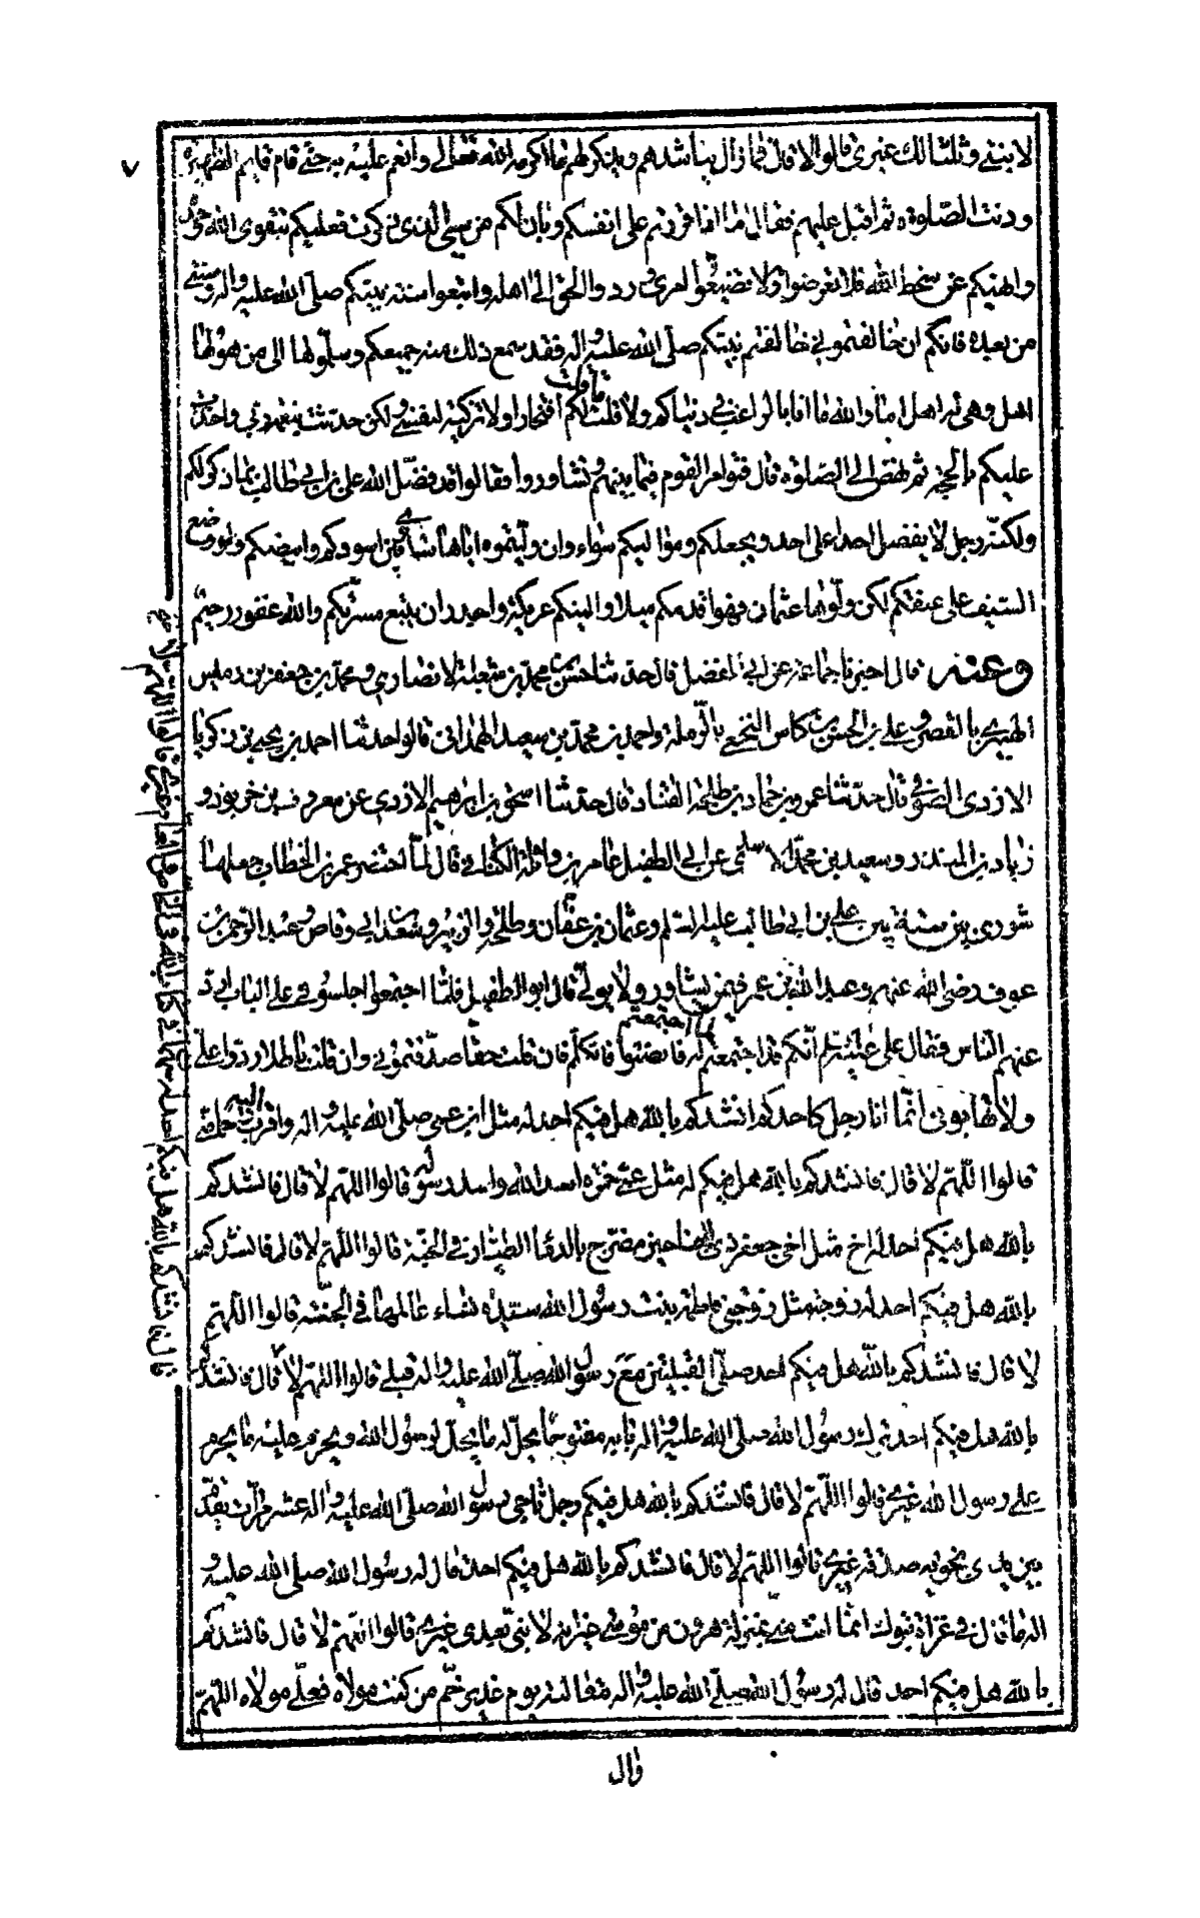 ٧
لابنتي وثلثا لك غيرى قالوا لا قال فما زال يناشدهم ويذكرلهم ما اكرمه الله تعالى وانعم عليه به حتى قام قايم الظهيرة
ودنت الصلوة ثم اقبل عليهم فقال اما اذا اقررتم على انفسكم وبان لكم من سببي الذى ذكرت فعليكم بتقوى الله وحده
وانهيكم عن سخط الله فلا تعرضوا ولا تضيعوا امرى وردوا الحق الى اهله واتبعوا سنة نبيكم صلى الله عليه واله وسنتى
من بعده فانكم ان خالفتموني خالفتم نبيكم صلى الله عليه واله فقد سمع ذلك منه جميعكم وسلموها الى من هو لها
اهل وهى له اهل اما والله ما انا بالراغب في دنياكم ولا قلت ما قلت لكم افتخارا ولا تزكية لنفسي ولكن حدثت بنعمة ربي واخذت
عليكم بالحجة ثم نهض الى الصلوة قال فتوامر القوم فيما بينهم وتشاوروا فقالوا قد فضل الله علي بن ابي طالب بما ذكر لكم
ولكنه رجل لا يفضل احدا على احد ويجعلكم ومواليكم سواء وان وليتموه اياها ساوى بين اسودكم وابيضكم ولو وضع
السيف على عنقكم لكن ولوها عثمان فهو اقدمكم ميلا والينكم عريكة واجدر ان يتبع مسرتكم والله غفور رحيم
وعنه قال اخبرنا جماعة عن ابي المفضل قال حدثنا حسن بن محمد بن شعبة الانصاري ومحمد بن جعفر بن رميس
الهبيري بالقصر وعلي بن الحسين بن كاس النخعي بالرملة واحمد بن محمد بن سعيد الهمداني قالوا حدثنا احمد بن يحيى بن زكريا
الازدى الصوفي قال حدثنا عمرو بن حماد بن طلحة القناد قال حدثنا اسحق بن ابرهيم الازدى عن معروف بن خربوذ و
زياد بن المنذر وسعيد بن محمد الاسلمي عن ابي الطفيل عامر بن واثلة الكناني قال لما احتضر عمر بن الخطاب جعلها
شورى بين ستة بين علي بن ابي طالب عليه السلم وعثمان بن عفان وطلحة والزبير وسعد بن ابي وقاص وعبد الرحمن بن
عوف رضى الله عنهم وعبد الله بن عمر فيمن يشاور ولا يولى قال ابو الطفيل فلما اجتمعوا اجلسوني على الباب ارد
عنهم الناس فقال علي عليه السلم انكم قد اجتمعتم لما اجتمعتم له فانصتوا فاتكلم فان قلت حقا صدقتموني وان قلت باطلا ردوا على
ولا تهابوني انما انا رجل كاحدكم انشدكم بالله هل فيكم احد له مثل ابن عمي صلى الله عليه واله واقرب اليه حما مني
قالوا اللهم لا قال فانشدكم بالله هل فيكم له مثل عمي حمزه اسد الله واسد رسوله قالوا اللهم لا قال فانشدكم
بالله هل فيكم احد له اخ مثل اخي جعفر ذى الجناحين مضرج بالدماء الطيار في الجنة قالوا اللهم لا قال فانشدكم
بالله هل فيكم احد له زوجة مثل زوجتي فاطمة بنت رسول الله سيدة نساء عالمها في الجنة قالوا اللهم
لا قال فانشدكم بالله هل فيكم احد صلى القبلتين مع رسول الله صلى الله عليه واله قبلي قالوا اللهم لا قال فانشدكم
بالله هل فيكم احد ترك رسول الله صلى الله عليه واله بابه مفتوحا يحل له ما يحل لرسول الله ويحرم عليه ما يحرم
على رسول الله غيرى قالوا اللهم لا قال فانشدكم بالله هل فيكم رجل ناجى رسول الله صلى الله عليه واله عشر مرات يقدم
بين يدى نجويه صدقة غيرى قالوا اللهم لا قال فانشدكم بالله هل فيكم احد قال له رسول الله صلى الله عليه و
اله ما قال في غزاة تبوك انما انت مني بمنزلة هرون من موسى خيرانه لا نبى بعدى غيرى قالوا اللهم لا قال فانشدكم
بالله هل فيكم احد قال له رسول الله صلى الله عليه واله مقالته يوم غدير خم من كنت مولاه فعلي مولاه اللهم
وال
قال فانشدكم بالله هل فيكم احد له سهم في كتاب الله في الخاص وفي العام غيري قالوا اللهم لا صح